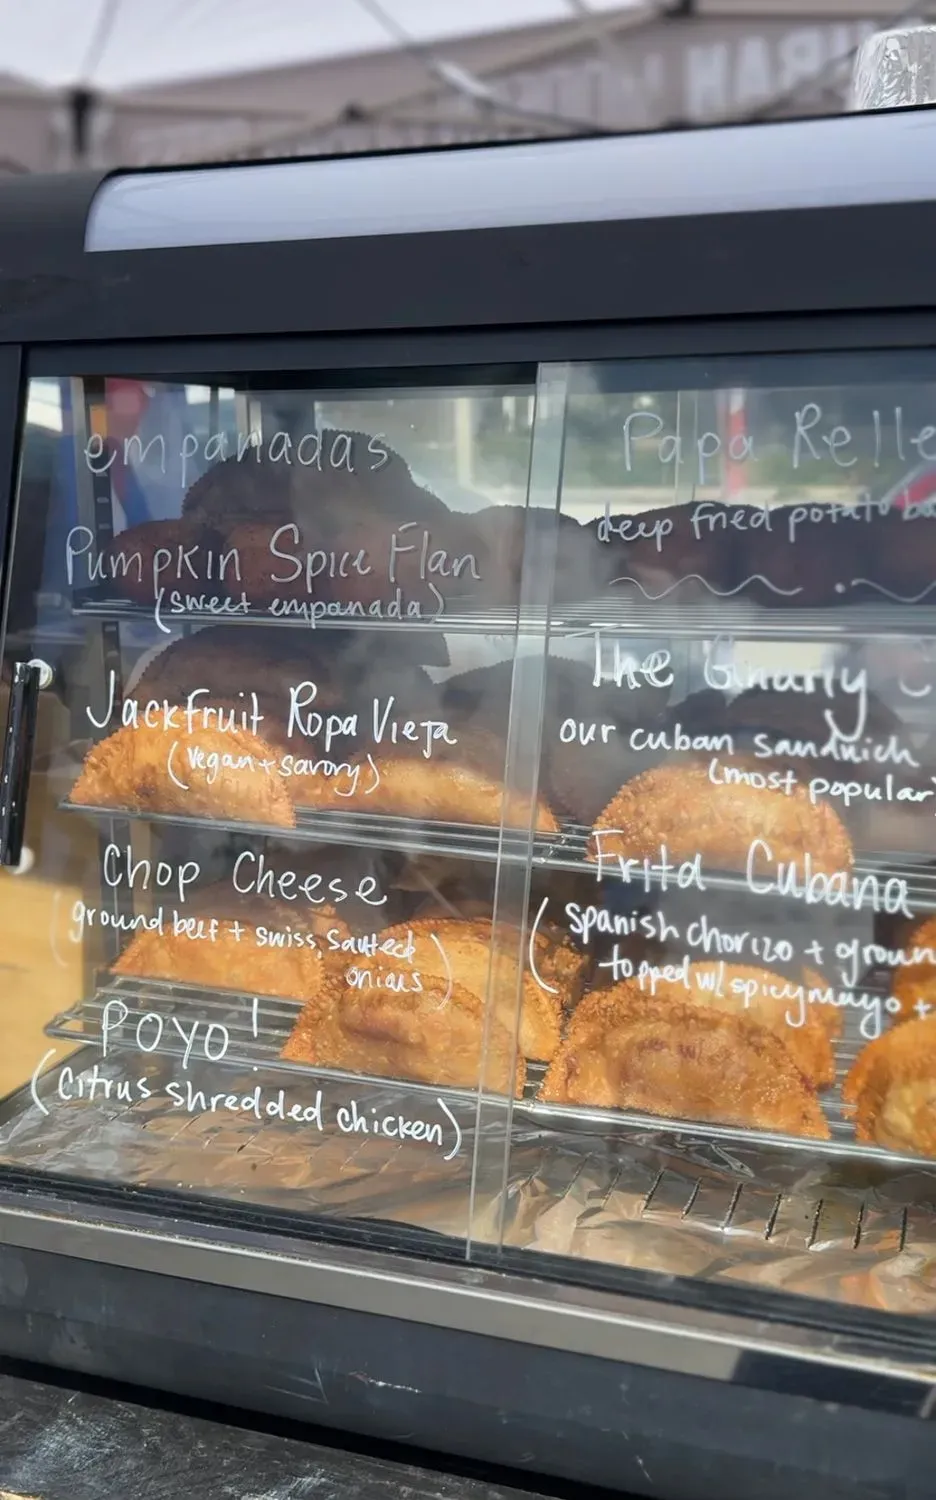 empanadas
Pumpkin Spice Flan
(sweet empanada)
Jackfruit Ropa Vieja
(vegan + savory)
Chop Cheese
ground beef + swiss, sauteed
onions)
POYO!
(citrus shredded chicken)
Papa Relle
deep fried potato ba
The Gnarly
our cuban sandwich
(most popular)
Frita Cubana
(spanish chorizo + groun
topped w/ spicy mayo +